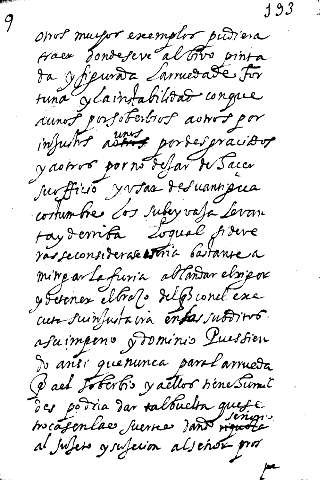 9
193
otros muchos exemplos pudiera
traer donde se ve al bivo pinta
da y figurada la rrueda de for
tuna y la instabilidad con que
a unos por soberbios a otros por
injustos a unos por desgraciados
y a otros por no dejar de hacer
su officio y usar de su antigua
costumbre los sube y vaja levan
ta y derriba Lo qual si de ve
ras se considerase seria bastante a
mitigar la furia ablandar el rigor
y detener el brazo del que con el exe
cuta su injusta ira en los subditos
a su imperio y dominio Pues sien
do ansi que nunca para la rrueda
que a el soberbio y a ellos tiene humil
des podria dar tal buelta que se
trocasen las suertes dando señorio
al sujeto y sujecion al señor pros
pe